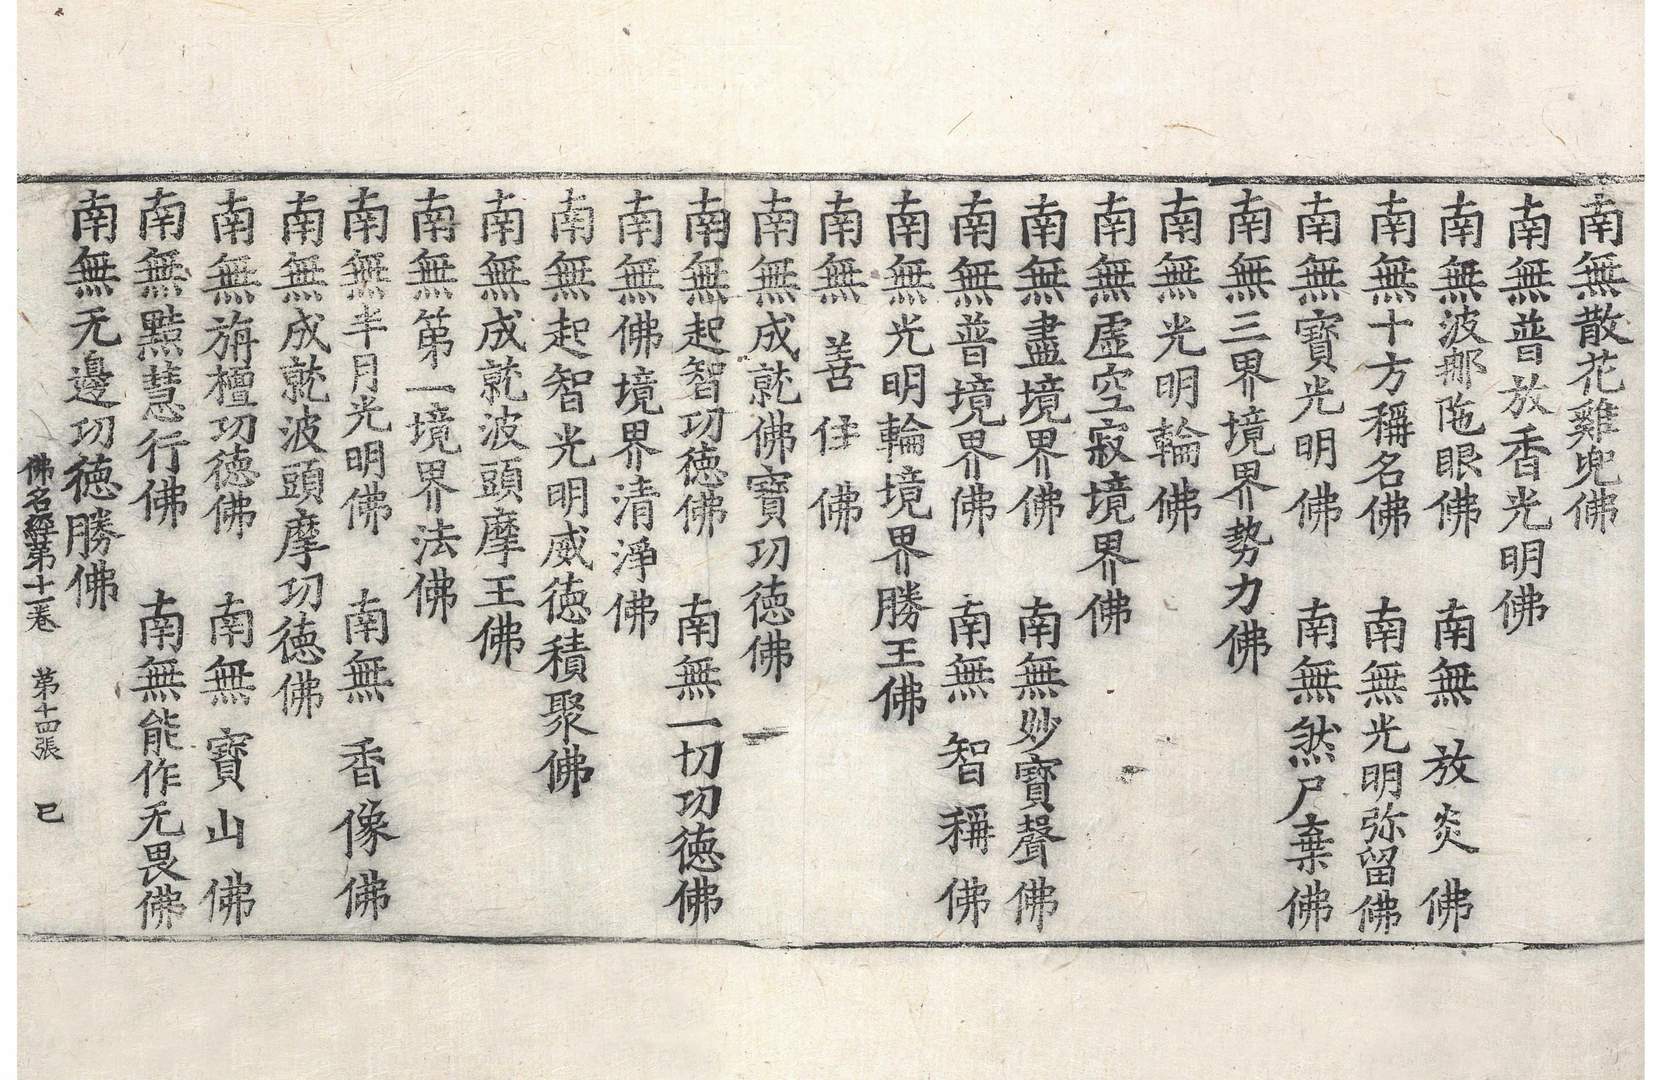 南無散花雞兜佛
南無普放香光明佛
南無波那陁眼佛 南無放炎佛
南無十方稱名佛 南無光明弥留佛
南無寶光明佛 南無然尸棄佛
南無三界境界勢力佛
南無光明輪佛
南無虛空寂境界佛
南無盡境界佛 南無妙寶聲佛
南無普境界佛 南無智稱佛
南無光明輪境界勝王佛
南無善住佛
南無成就佛寶功德佛
南無起智功德佛 南無一切功德佛
南無佛境界清淨佛
南無起智光明威德積聚佛
南無成就波頭摩王佛
南無第一境界法佛
南無半月光明佛 南無香像佛
南無成就波頭摩功德佛
南無旃檀功德佛 南無寶山佛
南無點慧行佛 南無能作无畏佛
南無无邊功德勝佛
佛名經第十一卷 第十四張 巳